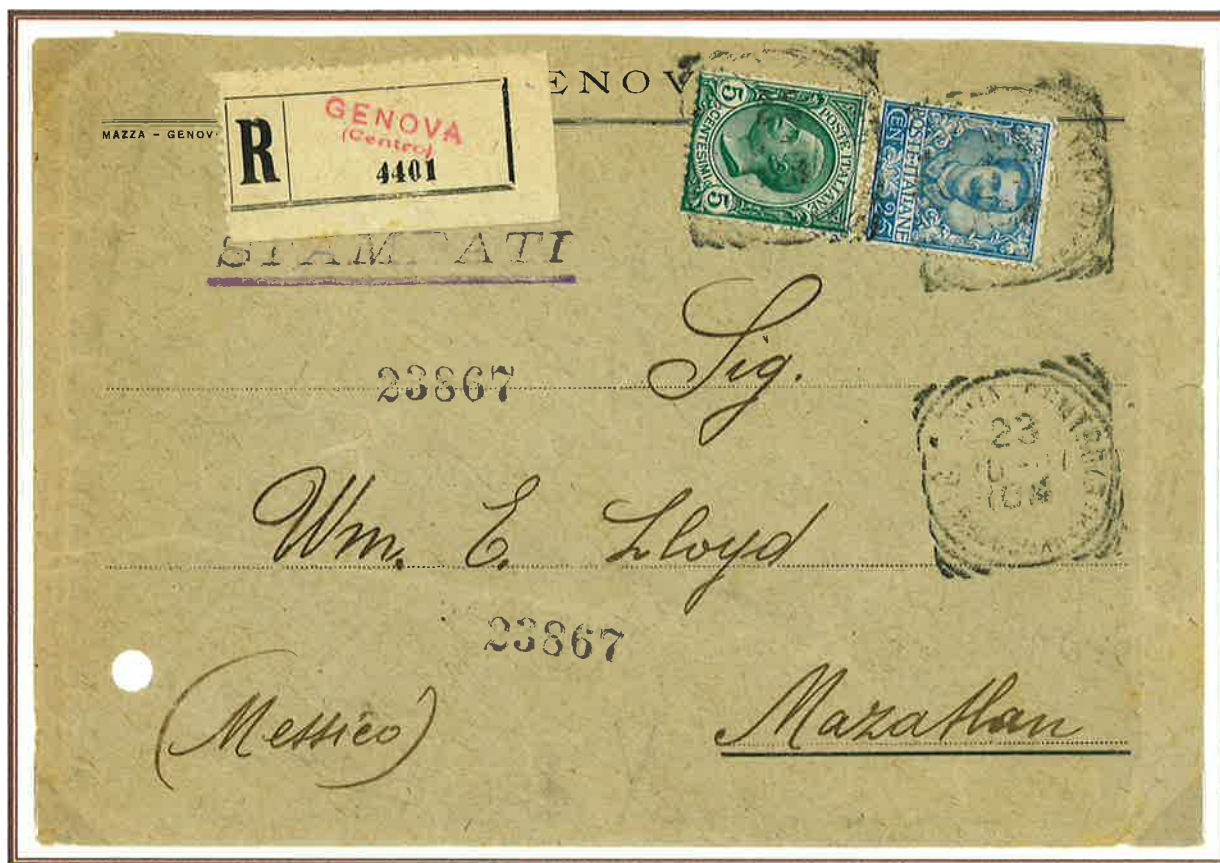 ENOV
MAZZA - GENOV
R
GENOVA
(Centro)
4401
5 5
CENTESIMI
POSTE ITALIANE
POSTE ITALIANE
CEN 25
STAMPATI
Sig.
23867
23
Wm. E. Lloyd
23867
(Messico)
Mazatlan